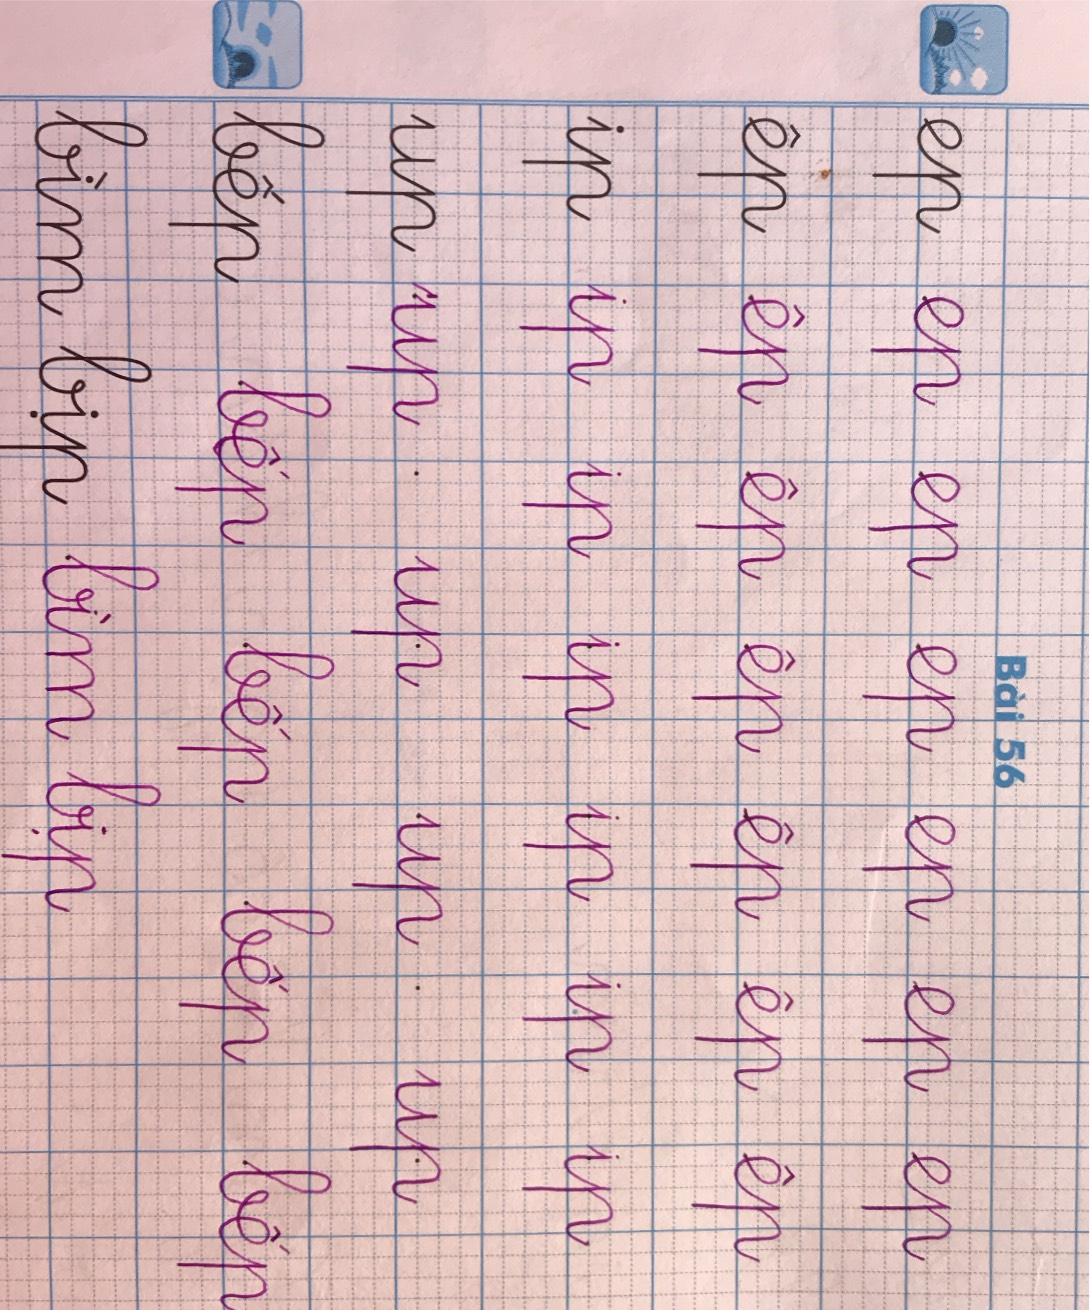 Bài 56
ep ep ep ep ep ep ep
êp êp êp êp êp êp êp
ip ip ip ip ip ip ip
up up up up up
bếp bếp bếp bếp bếp
bìm bịp bìm bịp